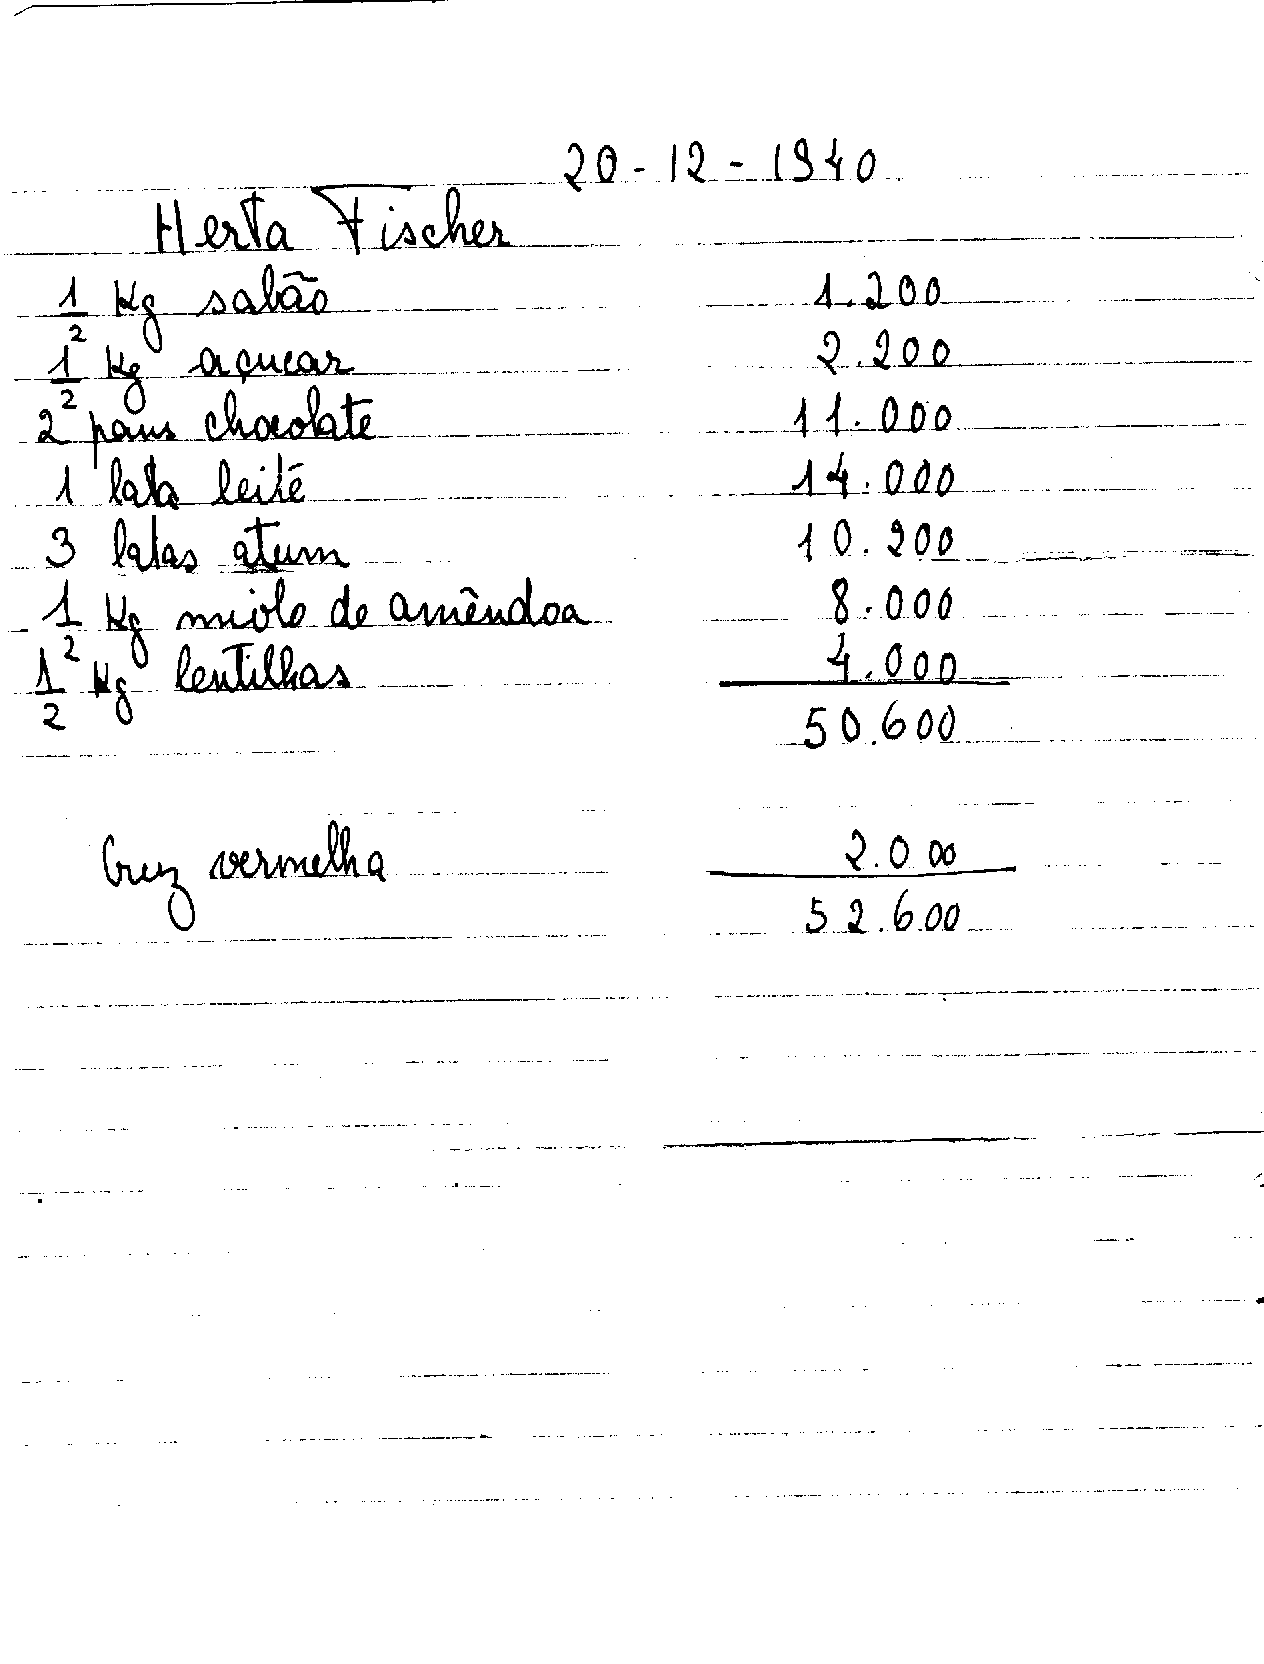 20-12-1940
Herta Fischer
1/2 Kg sabão 1.200
1/2 Kg açucar 2.200
2 paus chocolate 11.000
1 lata leite 14.000
3 latas atum 10.200
1/2 Kg miolo de amêndoa 8.000
1/2 Kg lentilhas 4.000
50.600
Cruz vermelha 2.000
52.600